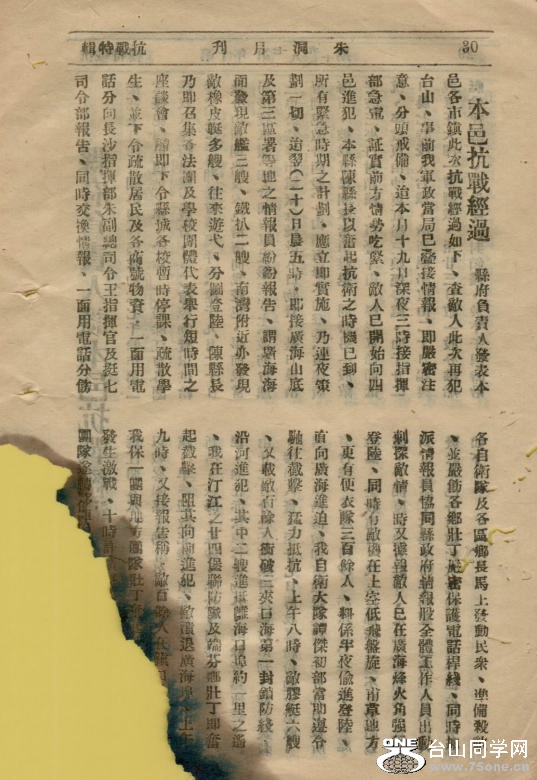 30 朱洞月刊 抗戰特輯
本邑抗戰經過 縣府負責人發表本
邑各市鎮此次抗戰經過如下、查敵人此次再犯
台山、事前我軍政當局已叠接情報、即嚴密注
意、分頭戒備、迨本月十九日深夜三時接指揮
部急電、証實前方情勢吃緊、敵人已開始向四
邑進犯、本縣陳縣長以奮起抗衛之時機已到、
所有緊急時期之計劃、應立即實施、乃連夜策
劃一切、迨翌(二十)日晨五時、即接廣海山底
及第三區署等地之情報員紛紛報告、謂廣海海
面發現敵艦三艘、鐵扒二艘、南灣附近亦發現
敵橡皮艇多艘、往來遊弋、分圖登陸、陳縣長
乃即召集各法團及學校團體代表舉行短時間之
座談會、隨即下令縣城各校暫時停課、疏散學
生、並下令疏散居民及各商號物資、一面用電
話分向長沙指揮部朱副總司令王指揮官及挺七
司令部報告、同時交換情報、一面用電話分飭
各自衛隊及各區鄉長馬上發動民衆、準備殺敵
、並嚴飭各鄉壯丁嚴密保護電話桿綫、同時加
派情報員協同縣政府情報股全體工作人員出動
刺探敵情、時又據報敵人已在廣海烽火角強
登陸、同時有敵機在上空低飛盤旋、南草地方
、更有便衣隊三百餘人、料係半夜偷進登陸、
直向廣海進迫、我自衛大隊譚傑初部當即遵令
馳往截擊、猛力抵抗、上午八時、敵膠艇六艘
、又載敵百餘人衝破三夾口海第一封鎖防綫、
沿河進犯、其中二艘進抵離海口埠約一里之遙
、我在汀江之廿四堡聯防隊及端芬鄉壯丁即奮
起截擊、阻其向前進犯、敵潰退廣海埠、上午
九時、又接報告稱、敵百餘人在
我保一團與地方團隊壯丁奮
發生激戰、十時許
團隊
ONE 台山同学网
www.75one.cn